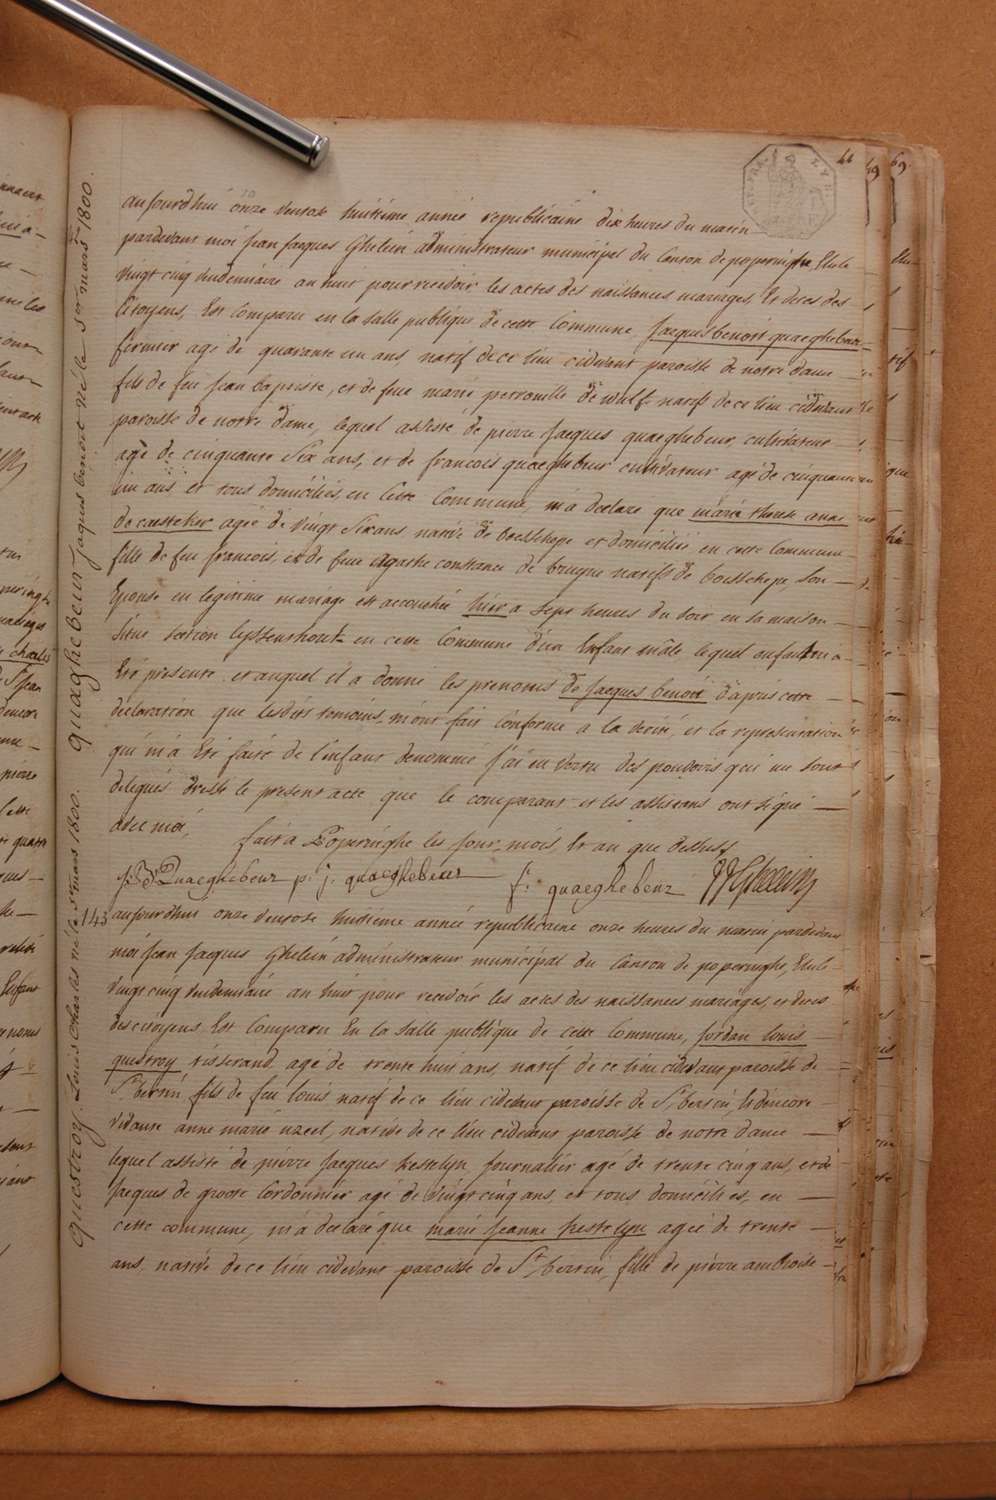 44
aujourdhui onze ventose huitieme anneé republicaine dix heures du matin
pardevant moi Jean Jaques Ghelein administrateur municipal du Canton de poperinghe Elu le
vingt cinq vendemiaire an huit pour recevoir les actes des naissances mariages, Et deces des
Citoyens, Est Comparu en la salle publique de cette Commune, Jacques benoit quaeghebeur
fermier agé de quarante un ans, natif de ce lieu cidevant paroisse de notre dame
fils de feu Jean baptiste, et de feue marie petronille de wulf natifs de ce lieu cidevant
paroisse de notre dame, lequel assisté de pierre Jacques quaeghebeur, cultivateur
agé de cinquante Six ans, et de francois quaeghebeur cultivateur agé de cinquante
un ans, et tous domiciliés en Cette Commune, m'a declaré que marie therese
de casteker ageé de vingt Six ans, native de boesschepe et domiciliée en cette Commune
fille de feu francois, et de feue agathe constance de bruyne natifs de boesschepe, Son
Epouse en legitime mariage est accouchée hier a sept heures du soir en sa maison
situé section lyssenthoek en cette Commune d'un Enfant mâle lequel enfant m'a
Eté presenté, et auquel il a donné les prenoms de Jacques benoit d'apres cette
declaration que lesdits temoins m'ont fait Conforme a la verité, et la representation
qui m'a Eté faite de l'enfant denommé J'ai en vertu des pouvoirs qui me sont
delegués dressé le present acte que le comparant et les assistans ont signé
avec moi,
fait a Poperinghe les Jour, mois, Et an que dessus
Quaeghebeur p. j. quaeghebeur f. quaeghebeur JJGhelein
143
aujourdhui onze ventose huitieme année republicaine onze heures du matin pardevant
moi Jean Jaques Ghelein administrateur municipal du Canton de poperinghe, Elu le
vingt cinq vendemiaire an huit pour recevoir les actes des naissances mariages, et deces
des citoyens Est Comparu En la Salle publique de cette Commune, Jordan louis
questroy tisserand agé de trente huit ans, natif de ce lieu cidevant paroisse de
St bertin, fils de feu louis natif de ce lieu cidevant paroisse de St bertin, Et d'encore
vivante anne marie uzeel, native de ce lieu cidevant paroisse de notre dame
lequel assisté de pierre Jacques kestelyn Journalier agé de trente cinq ans, et de
Jacques de groote Cordonnier agé de vingt cinq ans, et tous domiciliés, en
cette commune, m'a declaré que marie Jeanne kestelyn ageé de trente
ans, native de ce lieu cidevant paroisse de St bertin, fille de pierre ambroise
quaghebeur Jaques benoit né le mars 1800.
questroy. Louis Charles né le mars 1800.
69